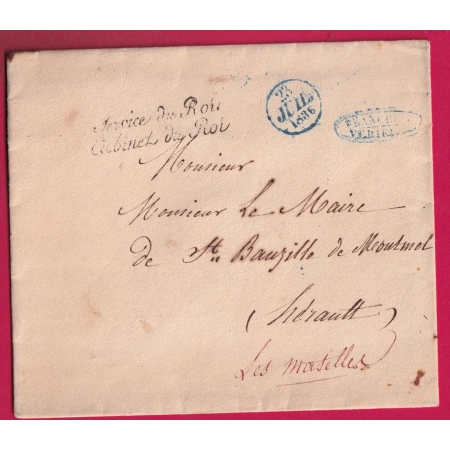 Service du Roi
Cabinet du Roi
23
JUIL
1836
FRANCHISE
VÉRIFIÉE
Monsieur
Monsieur Le Maire
de St. Bauzille de Montmel
(Hérault)
Les matelles